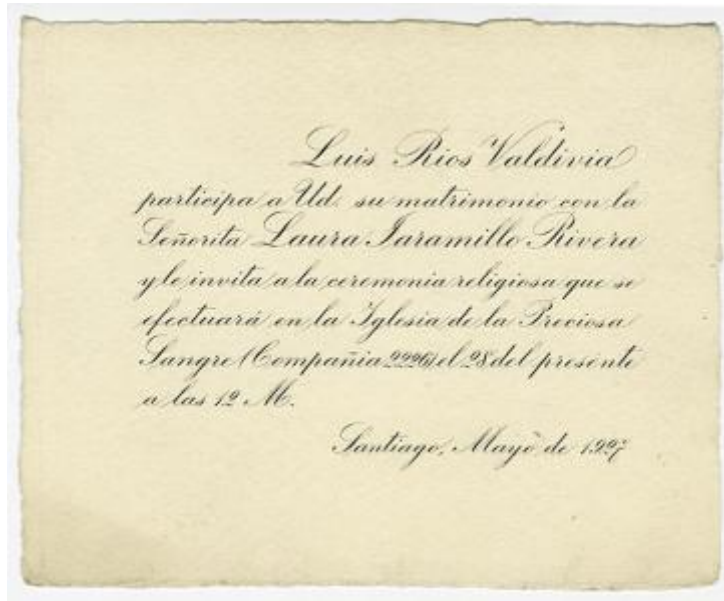 Luis Rios Valdivia
participa a Ud. su matrimonio con la
Señorita Laura Jaramillo Rivera
y le invita a la ceremonia religiosa que se
efectuará en la Iglesia de la Preciosa
Sangre (Compañia 2226) el 28 del presente
a las 12 M.
Santiago, Mayo de 1927